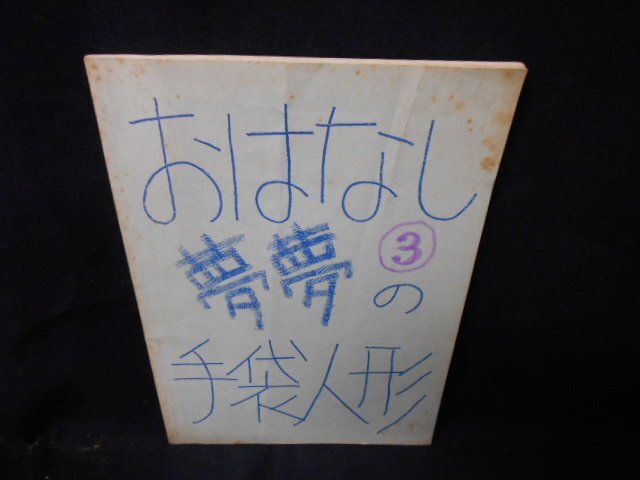 おはなし
夢夢③の
手袋人形